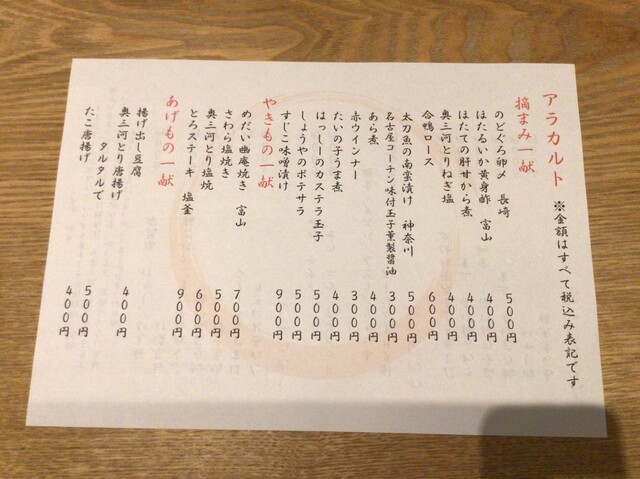 アラカルト ※金額はすべて税込み表記です
摘まみ一献
のどぐろ卵〆 長崎 500円
ほたるいか黄身酢 富山 400円
ほたての肝甘から煮 400円
奥三河とりねぎ塩 400円
合鴨ロース 600円
太刀魚の南蛮漬け 神奈川 500円
名古屋コーチン味付玉子薫製醤油 300円
あら煮 400円
赤ウインナー 300円
たいの子うま煮 400円
はっしーのカステラ玉子 500円
しょうやのポテサラ 500円
すじこ味噌漬け 900円
やきもの一献
めだい幽庵焼き 富山 700円
さわら塩焼き 500円
奥三河とり塩焼 600円
とろステーキ 塩釜 900円
あげもの一献
揚げ出し豆腐 400円
奥三河とり唐揚げ
タルタルで 500円
たこ唐揚げ 400円